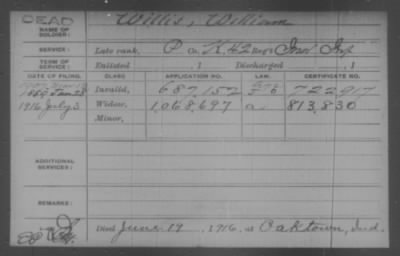 DEAD
NAME OF SOLDIER: Willis, William
SERVICE: Late rank, P Co. K, 42 Reg't Ind. Inf.
TERM OF SERVICE: Enlisted , 1 Discharged , 1
DATE OF FILING. CLASS. APPLICATION NO. LAW. CERTIFICATE NO.
Invalid, 687,152 722917
1916 July 3 Widow, 1,068,697 813,830
Minor,
ADDITIONAL SERVICES:
REMARKS:
Died June 19, 1916, at Oaktown, Ind.